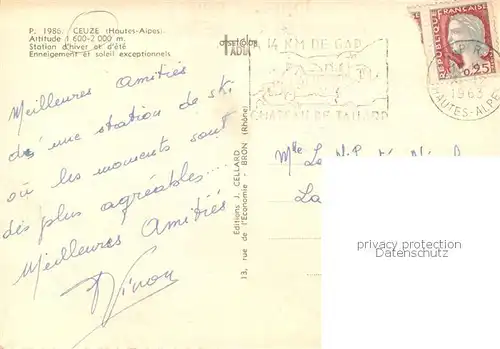 P. 1986. CEUZE (Hautes-Alpes).
Altitude 1 600-2 000 m.
Station d'hiver et d'été
Enneigement et soleil exceptionnels
14 KM DE GAP
CHATEAU DE TALLARD
REPUBLIQUE FRANÇAISE
0,25
1963
HAUTES-ALPES
Meilleures Amitiés
d'une station de ski
où les moments sont
des plus agréables....
Meilleures Amitiés
Editions J. CELLARD
13, rue de l'Economie - BRON (Rhône)
Mlle
privacy protection
Datenschutz